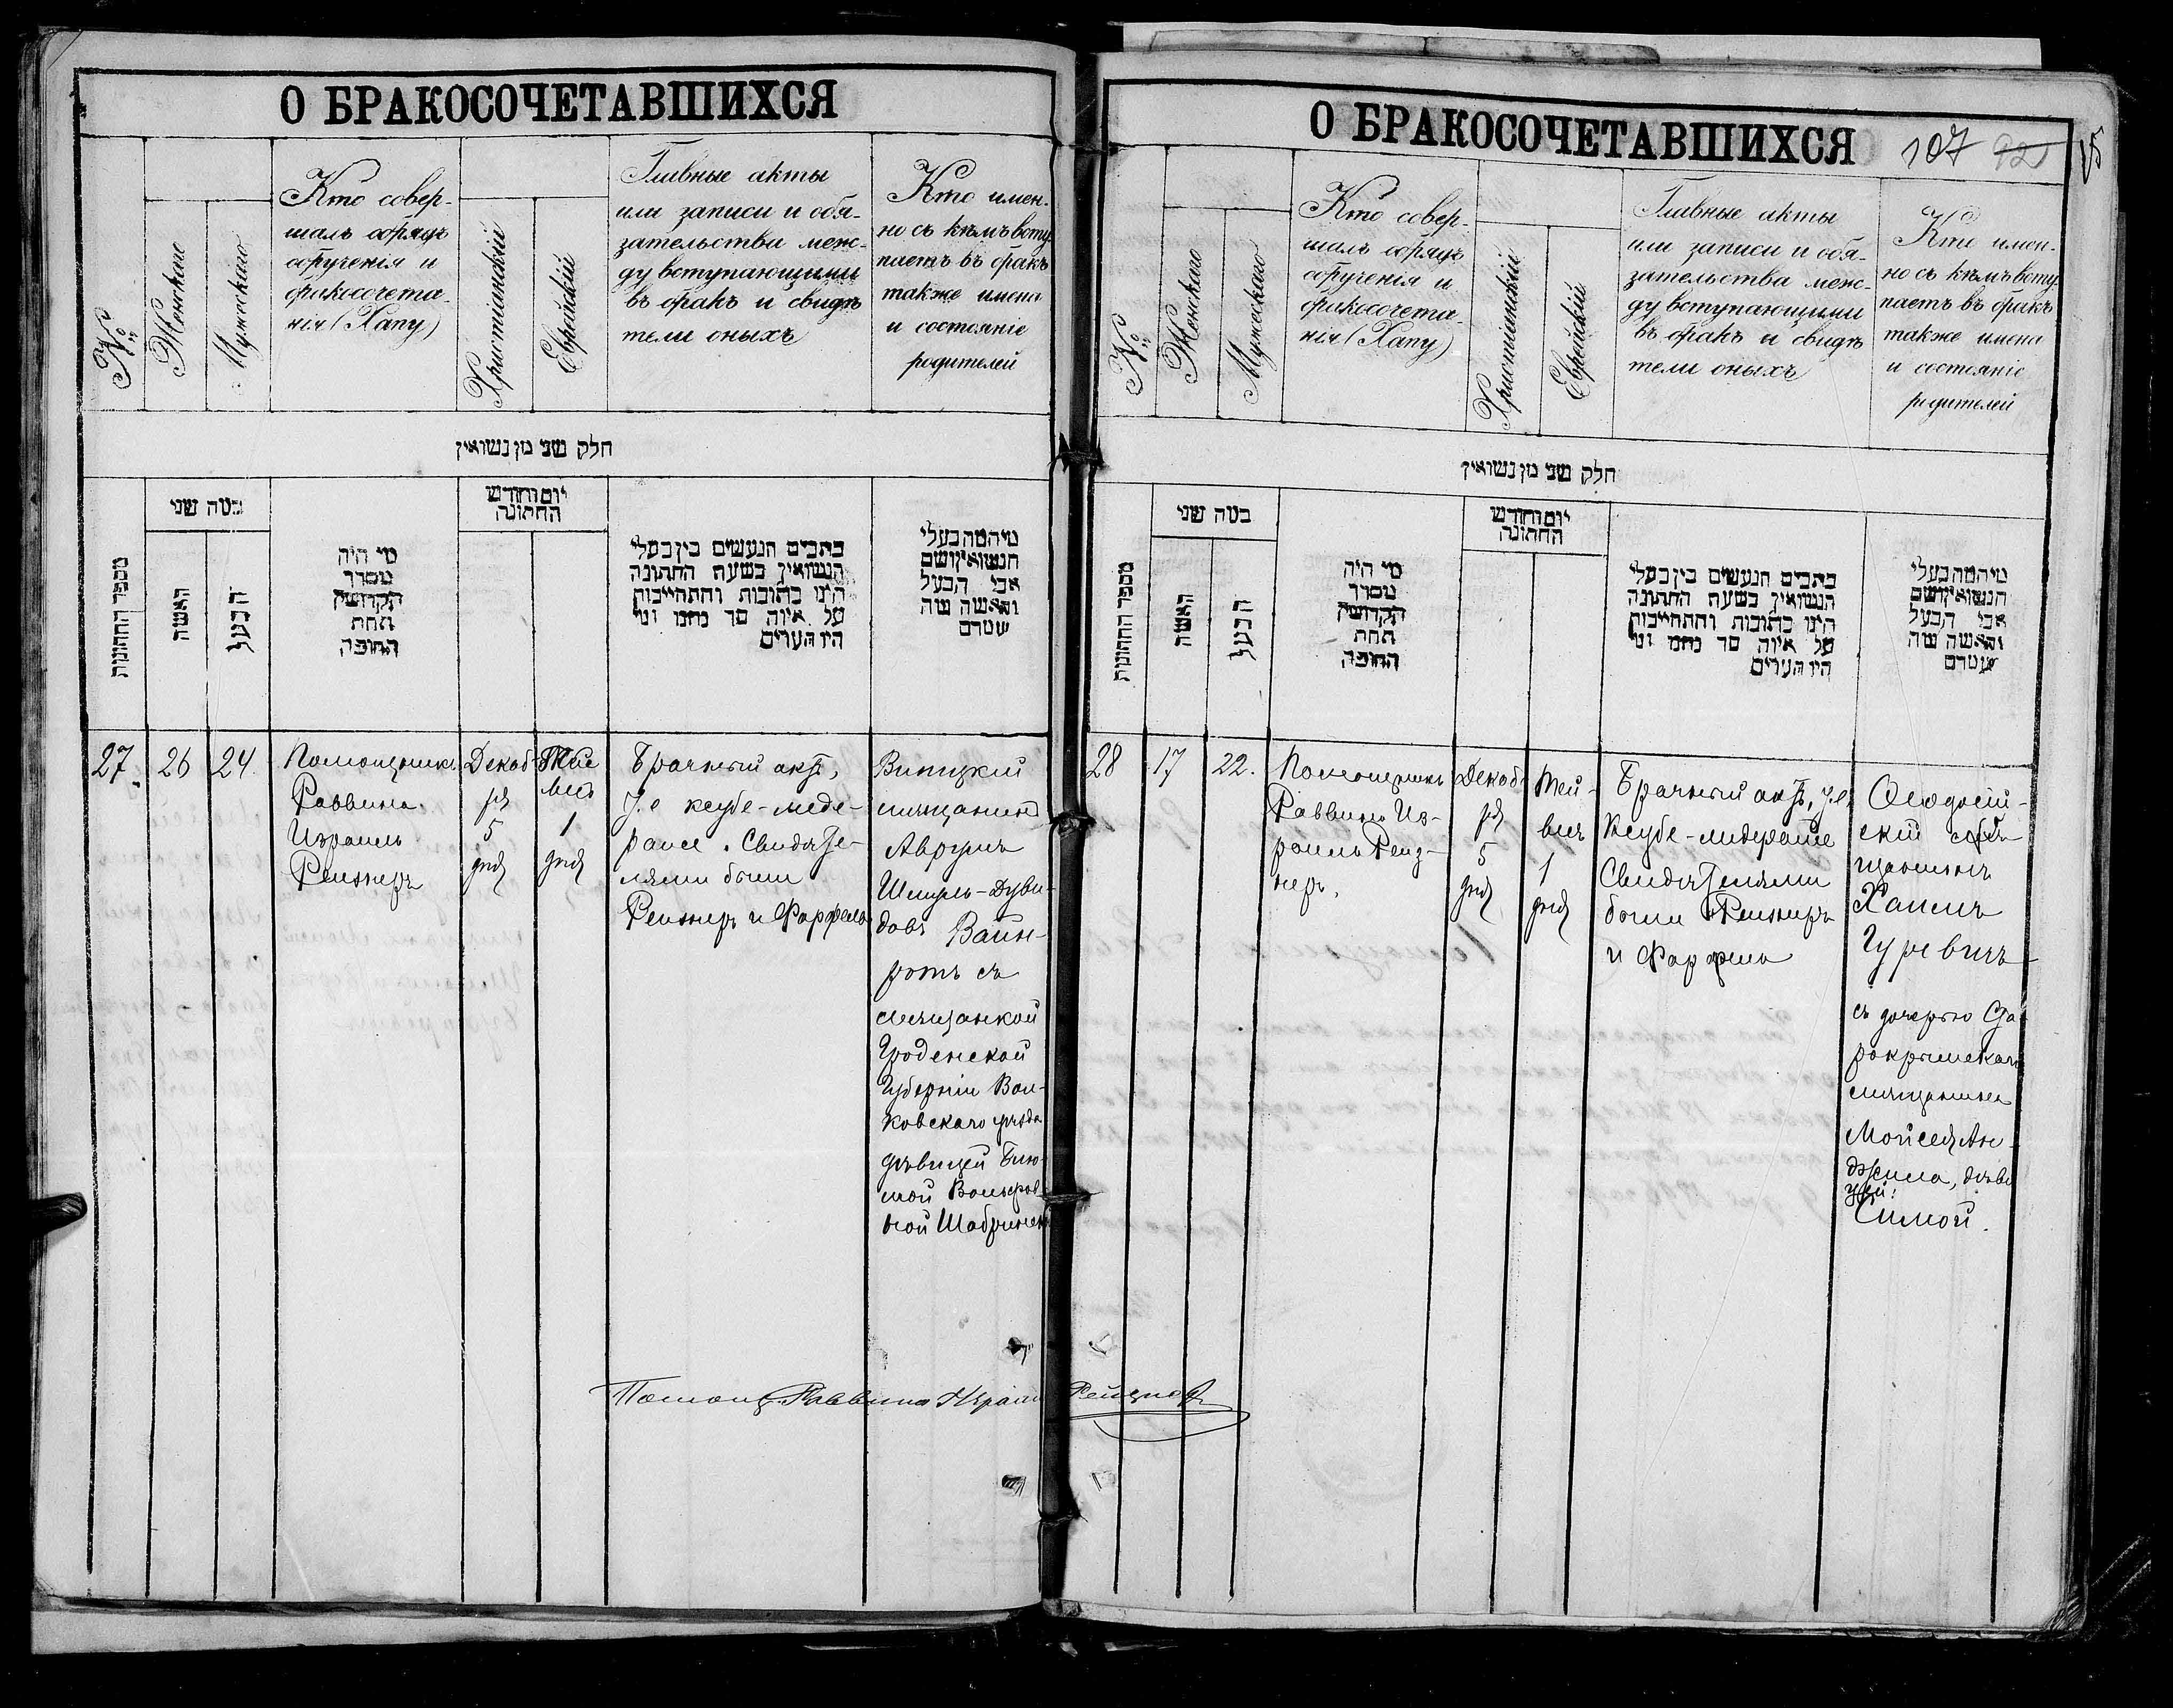 О БРАКОСОЧЕТАВШИХСЯ
№
Женскаго
Мужескаго
Кто совер-
шалъ обрядъ
обрученія и
бракосочета-
нія (Хапу)
Христіанскій
Еврейскій
Главные акты
или записи и обя-
зательства меж-
ду вступающими
въ бракъ и свидѣ
тели оныхъ
Кто имен-
но съ кѣмъ всту-
паетъ въ бракъ
также имена
и состояніе
родителей
חלק שני מן נשואין
מספר החתונות
במה שני
האשה
הבעל
מי היה
מסדר
הקדושין
תחת
החופה
יום וחודש
החתונה
כתבים הנעשים בין בעלי
הנשואין בשעת החתונה
היינו כתובות והתחייבות
על איזה סך כמו ומי
היו העדים
מי המה בעלי
הנשואין ושם
אבי הבעל
והאשה מה
שמם
27.
26
24.
Помощникъ
Раввина
Израиль
Рейзнеръ
Декаб-
ря
5
дня
Тей
весъ
1
дня
Брачный актъ,
т.е ксубе-меде-
райсе. Свидѣте-
лями были
Рейзнеръ и Фарфель
Витцкій
мѣщанинъ
Аврумъ
Шмуль-Дуви-
довъ Вайн-
ротъ съ
мѣщанкой
Гроденской
Губерніи Вол-
ковскаго уѣзда
дѣвицей Блю-
мой Вольфов-
ной Шабринск
Помощ. Раввина Израиль Рейзнеръ
О БРАКОСОЧЕТАВШИХСЯ
107
92
15
№
Женскаго
Мужескаго
Кто совер-
шалъ обрядъ
обрученія и
бракосочета-
нія (Хапу)
Христіанскій
Еврейскій
Главные акты
или записи и обя-
зательства меж-
ду вступающими
въ бракъ и свидѣ
тели оныхъ
Кто имен-
но съ кѣмъ всту-
паетъ въ бракъ
также имена
и состояніе
родителей
חלק שני מן נשואין
מספר החתונות
במה שני
האשה
הבעל
מי היה
מסדר
הקדושין
תחת
החופה
יום וחודש
החתונה
כתבים הנעשים בין בעלי
הנשואין בשעת החתונה
היינו כתובות והתחייבות
על איזה סך כמו ומי
היו העדים
מי המה בעלי
הנשואין ושם
אבי הבעל
והאשה מה
שמם
28
17
22.
Помощникъ
Раввина Из-
раиль Рейз-
неръ.
Декаб-
ря
5
дня
Тей-
весъ
1
дня
Брачный актъ, т.е.
Ксубе-медерайсе
Свидѣтелями
были Рейзнеръ
и Фарфель
Ѳеодосій-
скій
щанинъ
Хаимъ
Гуревичъ
съ дочерью Ста-
рокрымскаго
мѣщанина
Мойсея Ан-
джила, дѣви
цей:
Симой.